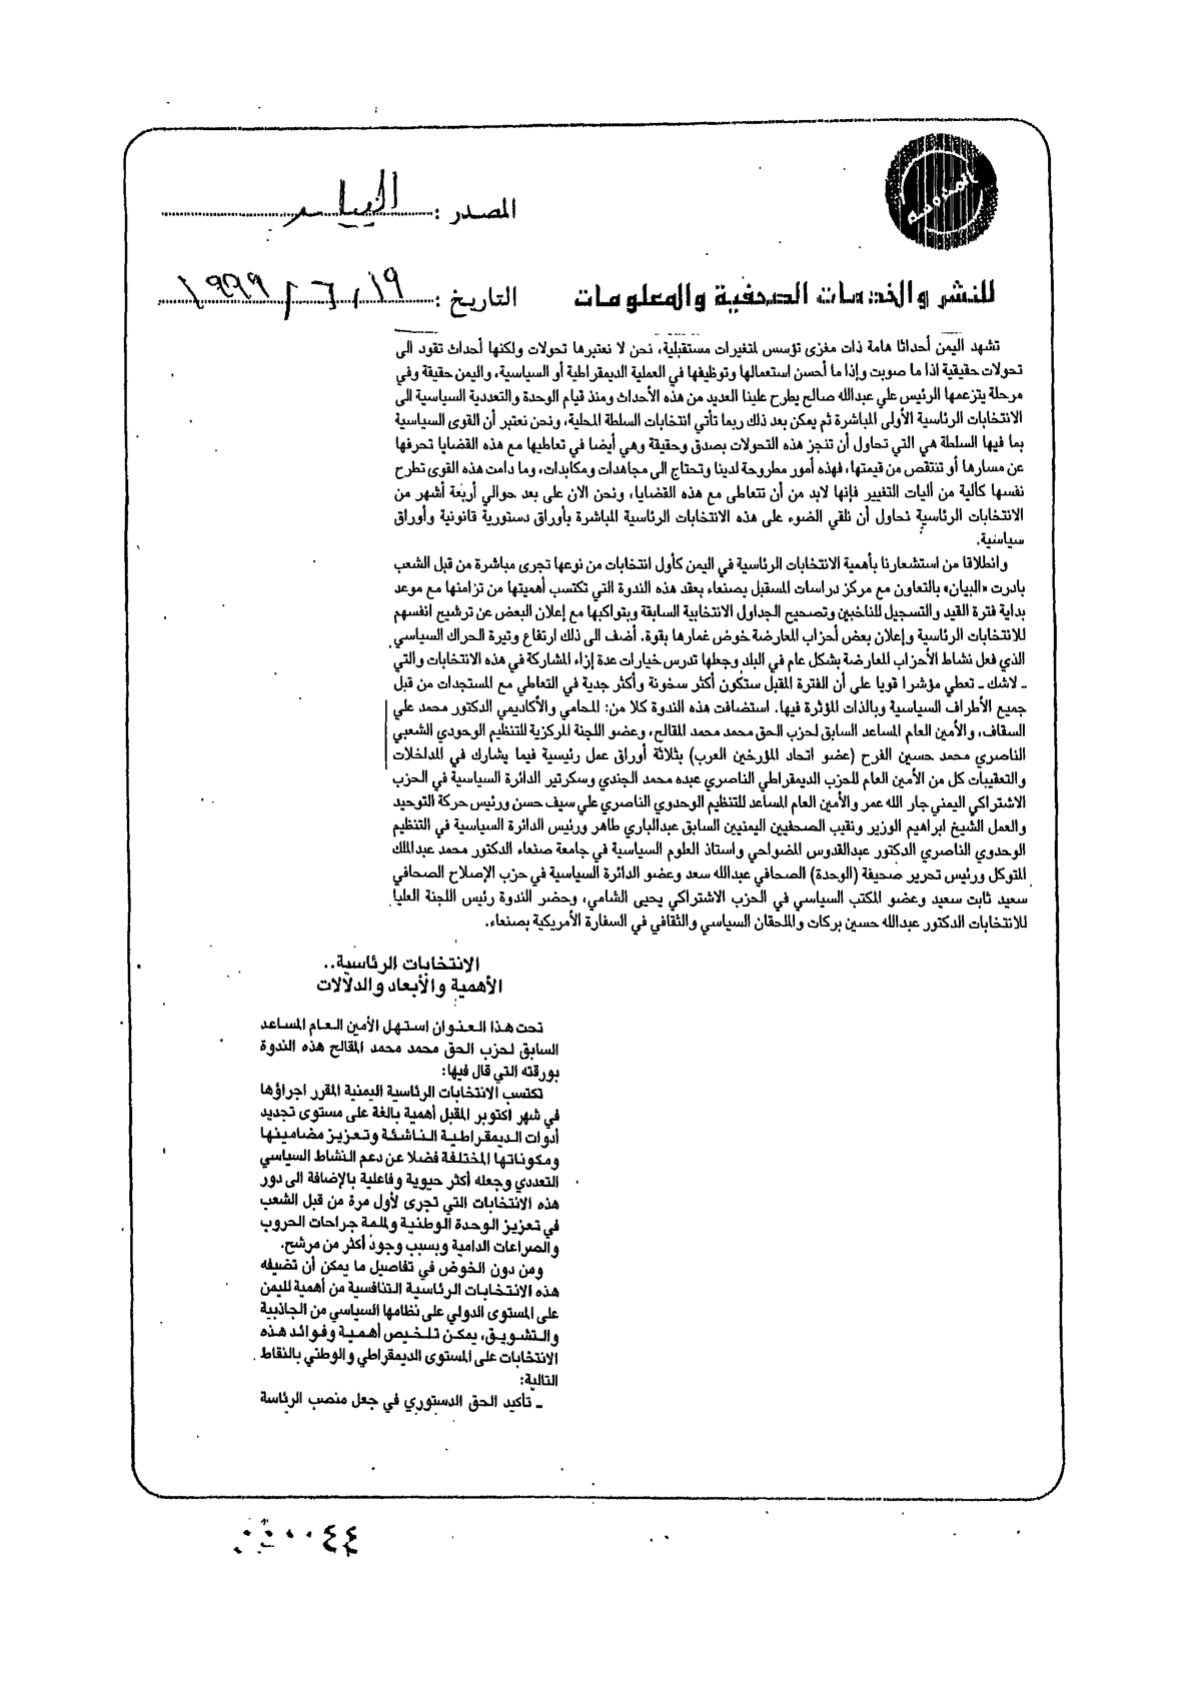 المحروسة
المصدر : البيان
للنشر والخدمات الصحفية والمعلومات
التاريخ : ١٩ / ٦ / ١٩٩٩
تشهد اليمن أحداثا هامة ذات مغزى تؤسس لمتغيرات مستقبلية، نحن لا نعتبرها تحولات ولكنها أحداث تقود الى
تحولات حقيقية اذا ما صوبت وإذا ما أحسن استعمالها وتوظيفها في العملية الديمقراطية أو السياسية، واليمن حقيقة وفي
مرحلة يتزعمها الرئيس علي عبدالله صالح يطرح علينا العديد من هذه الأحداث ومنذ قيام الوحدة والتعددية السياسية الى
الانتخابات الرئاسية الأولى المباشرة ثم يمكن بعد ذلك ربما تأتي انتخابات السلطة المحلية، ونحن نعتبر أن القوى السياسية
بما فيها السلطة هي التي تحاول أن تنجز هذه التحولات بصدق وحقيقة وهي أيضا في تعاطيها مع هذه القضايا تحرفها
عن مسارها أو تنتقص من قيمتها، فهذه أمور مطروحة لدينا وتحتاج الى مجاهدات ومكابدات، وما دامت هذه القوى تطرح
نفسها كألية من أليات التغيير فإنها لابد من أن تتعاطى مع هذه القضايا، ونحن الان على بعد حوالي أربعة أشهر من
الانتخابات الرئاسية نحاول أن نلقي الضوء على هذه الانتخابات الرئاسية المباشرة بأوراق دستورية قانونية وأوراق
سياسية.
وانطلاقا من استشعارنا بأهمية الانتخابات الرئاسية في اليمن كأول انتخابات من نوعها تجرى مباشرة من قبل الشعب
بادرت «البيان» بالتعاون مع مركز دراسات المسقبل بصنعاء بعقد هذه الندوة التي تكتسب أهميتها من تزامنها مع موعد
بداية فترة القيد والتسجيل للناخبين وتصحيح الجداول الانتخابية السابقة وبتواكبها مع إعلان البعض عن ترشيح انفسهم
للانتخابات الرئاسية وإعلان بعض أحزاب المعارضة خوض غمارها بقوة. أضف الى ذلك ارتفاع وتيرة الحراك السياسي
الذي فعل نشاط الأحزاب المعارضة بشكل عام في البلد وجعلها تدرس خيارات عدة إزاء المشاركة في هذه الانتخابات والتي
ـ لاشك ـ تعطي مؤشرا قويا على أن الفترة المقبل ستكون أكثر سخونة وأكثر جدية في التعاطي مع المستجدات من قبل
جميع الأطراف السياسية وبالذات المؤثرة فيها. استضافت هذه الندوة كلا من: المحامي والأكاديمي الدكتور محمد علي
السقاف، والأمين العام المساعد السابق لحزب الحق محمد محمد المقالح، وعضو اللجنة المركزية للتنظيم الوحودي الشعبي
الناصري محمد حسين الفرح (عضو اتحاد المؤرخين العرب) بثلاثة أوراق عمل رئيسية فيما يشارك في المداخلات
والتعقيبات كل من الأمين العام للحزب الديمقراطي الناصري عبده محمد الجندي وسكرتير الدائرة السياسية في الحزب
الاشتراكي اليمني جار الله عمر والأمين العام المساعد للتنظيم الوحدوي الناصري علي سيف حسن ورئيس حركة التوحيد
والعمل الشيخ ابراهيم الوزير ونقيب الصحفيين اليمنيين السابق عبدالباري طاهر ورئيس الدائرة السياسية في التنظيم
الوحدوي الناصري الدكتور عبدالقدوس المضواحي واستاذ العلوم السياسية في جامعة صنعاء الدكتور محمد عبدالملك
المتوكل ورئيس تحرير صحيفة (الوحدة) الصحافي عبدالله سعد وعضو الدائرة السياسية في حزب الإصلاح الصحافي
سعيد ثابت سعيد وعضو المكتب السياسي في الحزب الاشتراكي يحيى الشامي، وحضر الندوة رئيس اللجنة العليا
للانتخابات الدكتور عبدالله حسين بركات والملحقان السياسي والثقافي في السفارة الأمريكية بصنعاء.
الانتخابات الرئاسية..
الأهمية والأبعاد والدلالات
تحت هذا العنوان استهل الأمين العام المساعد
السابق لحزب الحق محمد محمد المقالح هذه الندوة
بورقته التي قال فيها:
تكتسب الانتخابات الرئاسية اليمنية المقرر اجراؤها
في شهر اكتوبر المقبل أهمية بالغة على مستوى تجديد
أدوات الديمقراطية الناشئة وتعزيز مضامينها
ومكوناتها المختلفة فضلا عن دعم النشاط السياسي
التعددي وجعله أكثر حيوية وفاعلية بالإضافة الى دور
هذه الانتخابات التي تجرى لأول مرة من قبل الشعب
في تعزيز الوحدة الوطنية ولملمة جراحات الحروب
والصراعات الدامية وبسبب وجود أكثر من مرشح.
ومن دون الخوض في تفاصيل ما يمكن أن تضيفه
هذه الانتخابات الرئاسية التنافسية من أهمية لليمن
على المستوى الدولي على نظامها السياسي من الجاذبية
والتشويق، يمكن تلخيص أهمية وفوائد هذه
الانتخابات على المستوى الديمقراطي والوطني بالنقاط
التالية:
ـ تأكيد الحق الدستوري في جعل منصب الرئاسة